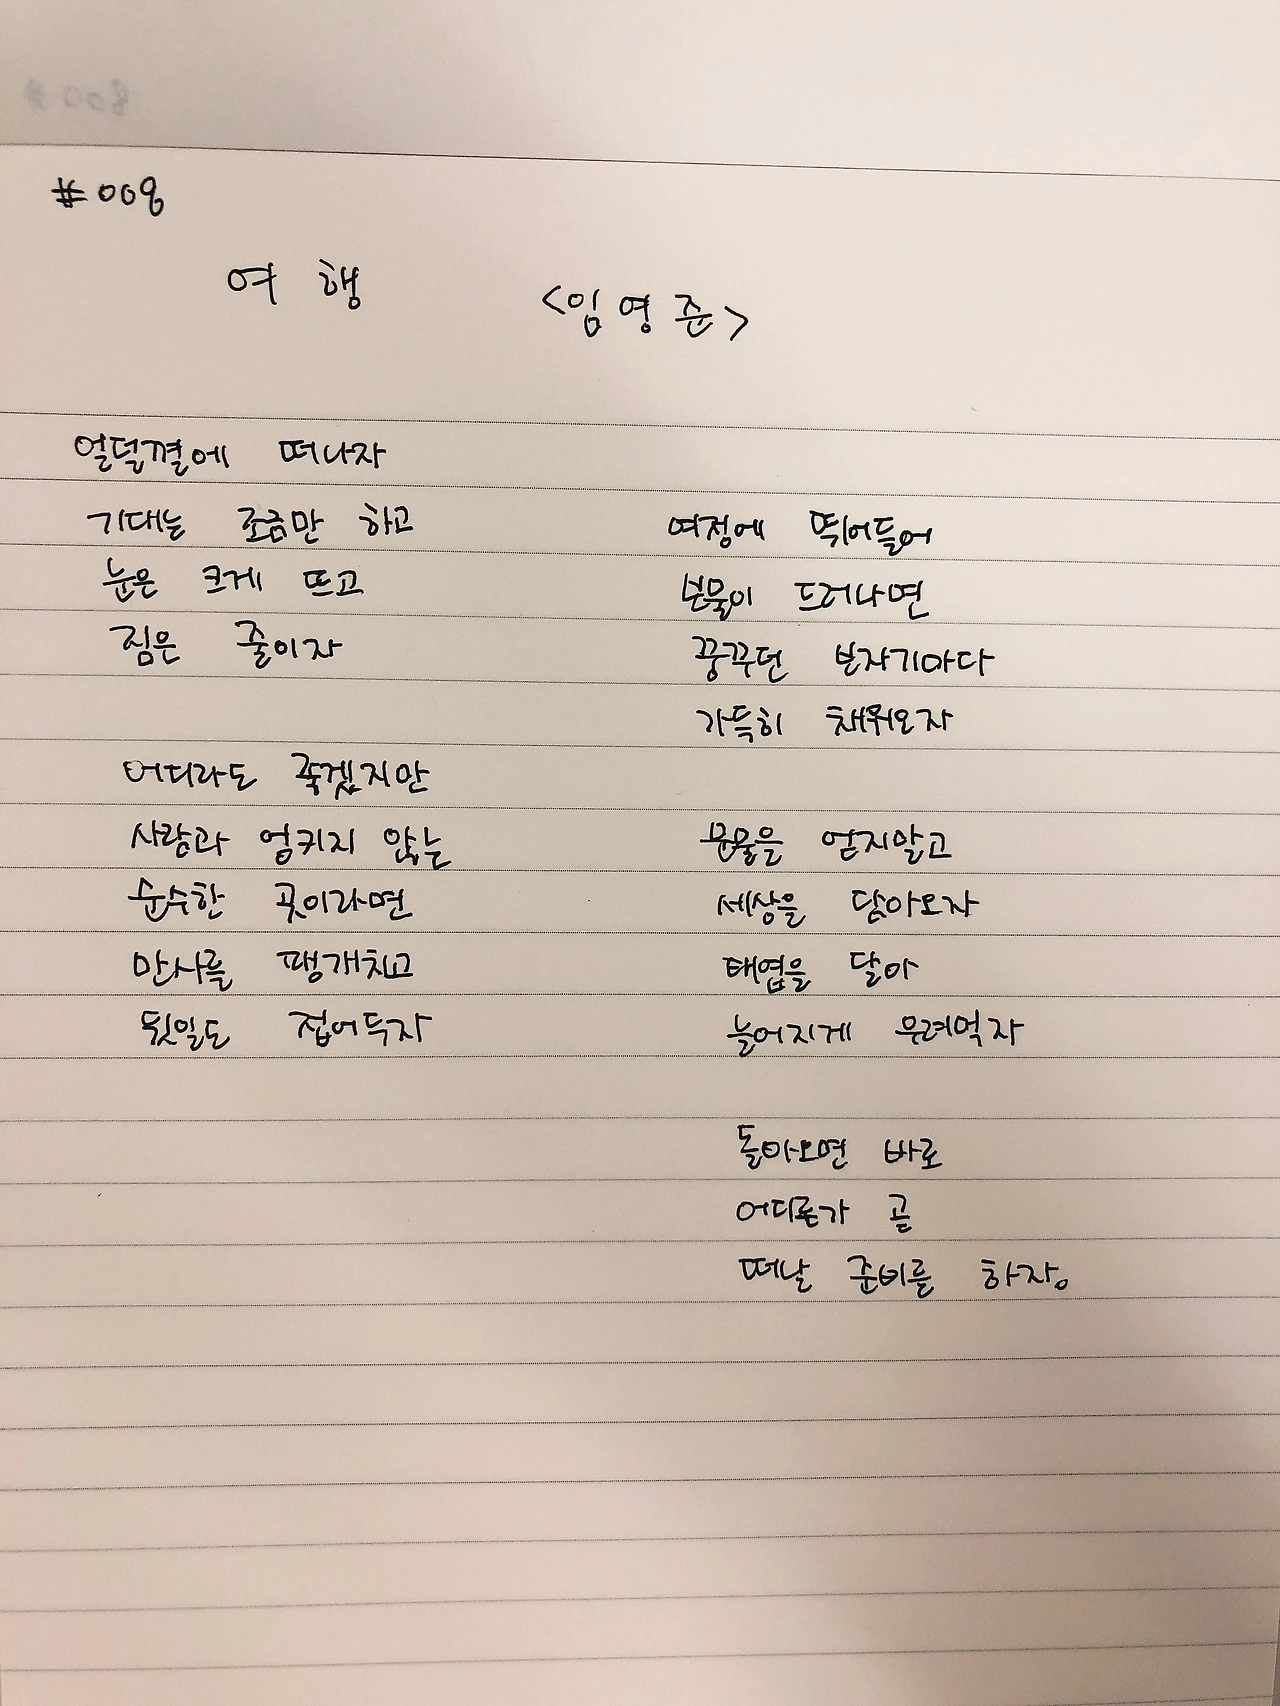 #009
여행
<임영준>
얼덜결에 떠나자
기대는 조금만 하고
눈은 크게 뜨고
짐은 줄이자
어디라도 좋겠지만
사람과 엉키지 않는
순수한 곳이라면
만사를 팽개치고
뒷일도 접어두자
여정에 뛰어들어
보물이 드러나면
꿍꾸던 보자기마다
가득히 채워오자
문물을 얻지말고
세상을 담아오자
태엽을 달아
늘어지게 우려먹자
돌아오면 바로
어디론가 곧
떠날 준비를 하자.